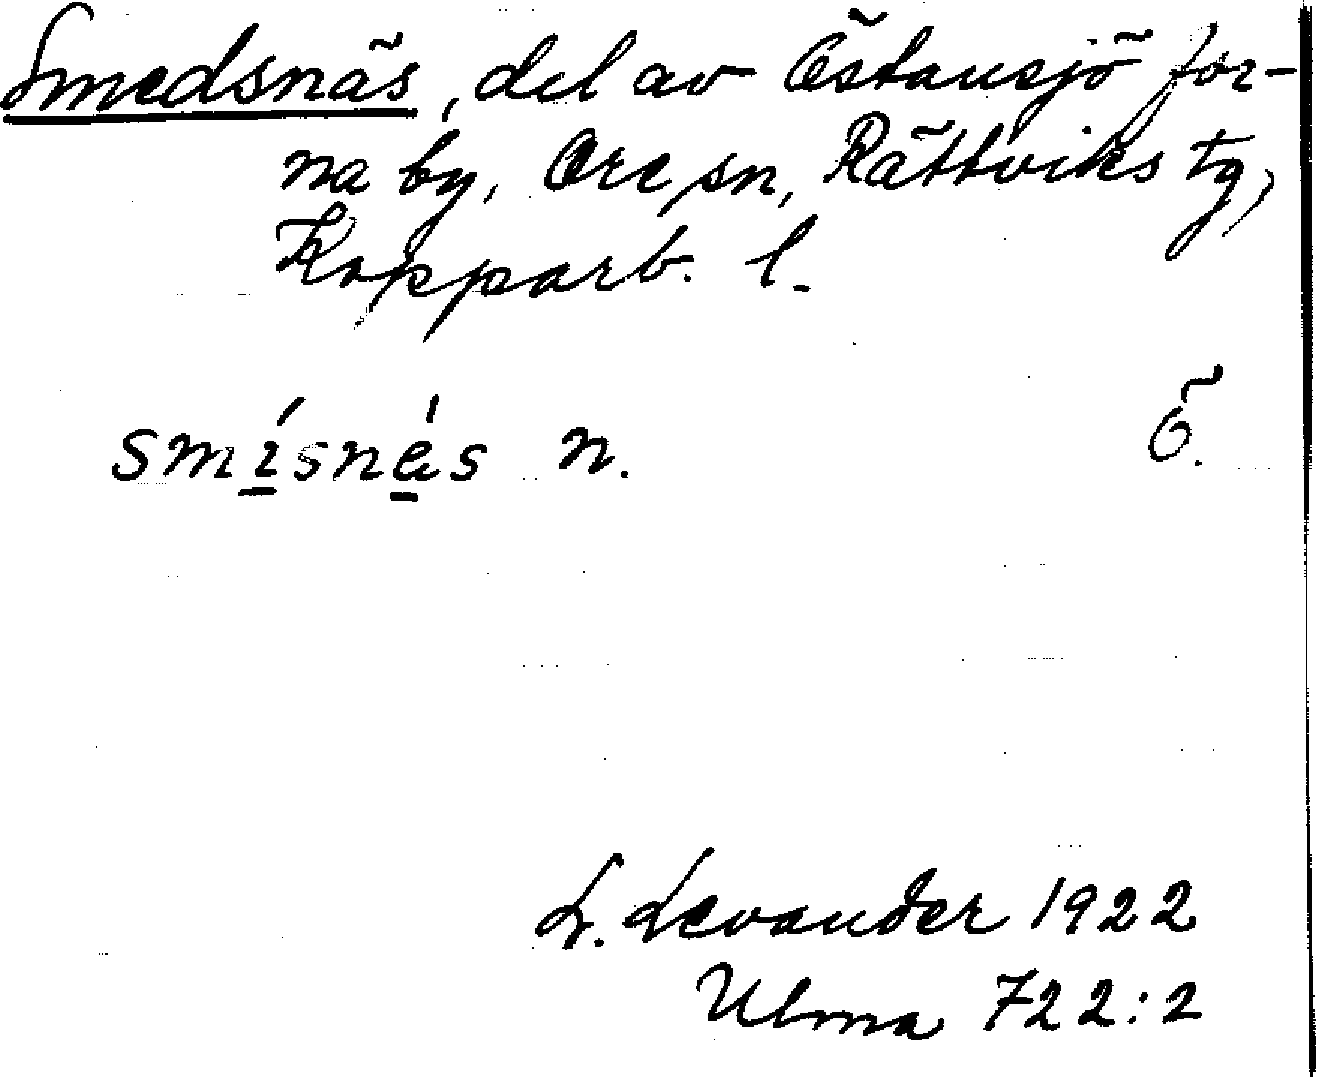 Smedsnäs, del av Östansjö for-
na by, Ore sn, Rättviks tg,
Kopparb. l.
smísnás n. Ö.
L. Levander 1922
Ulma 722:2